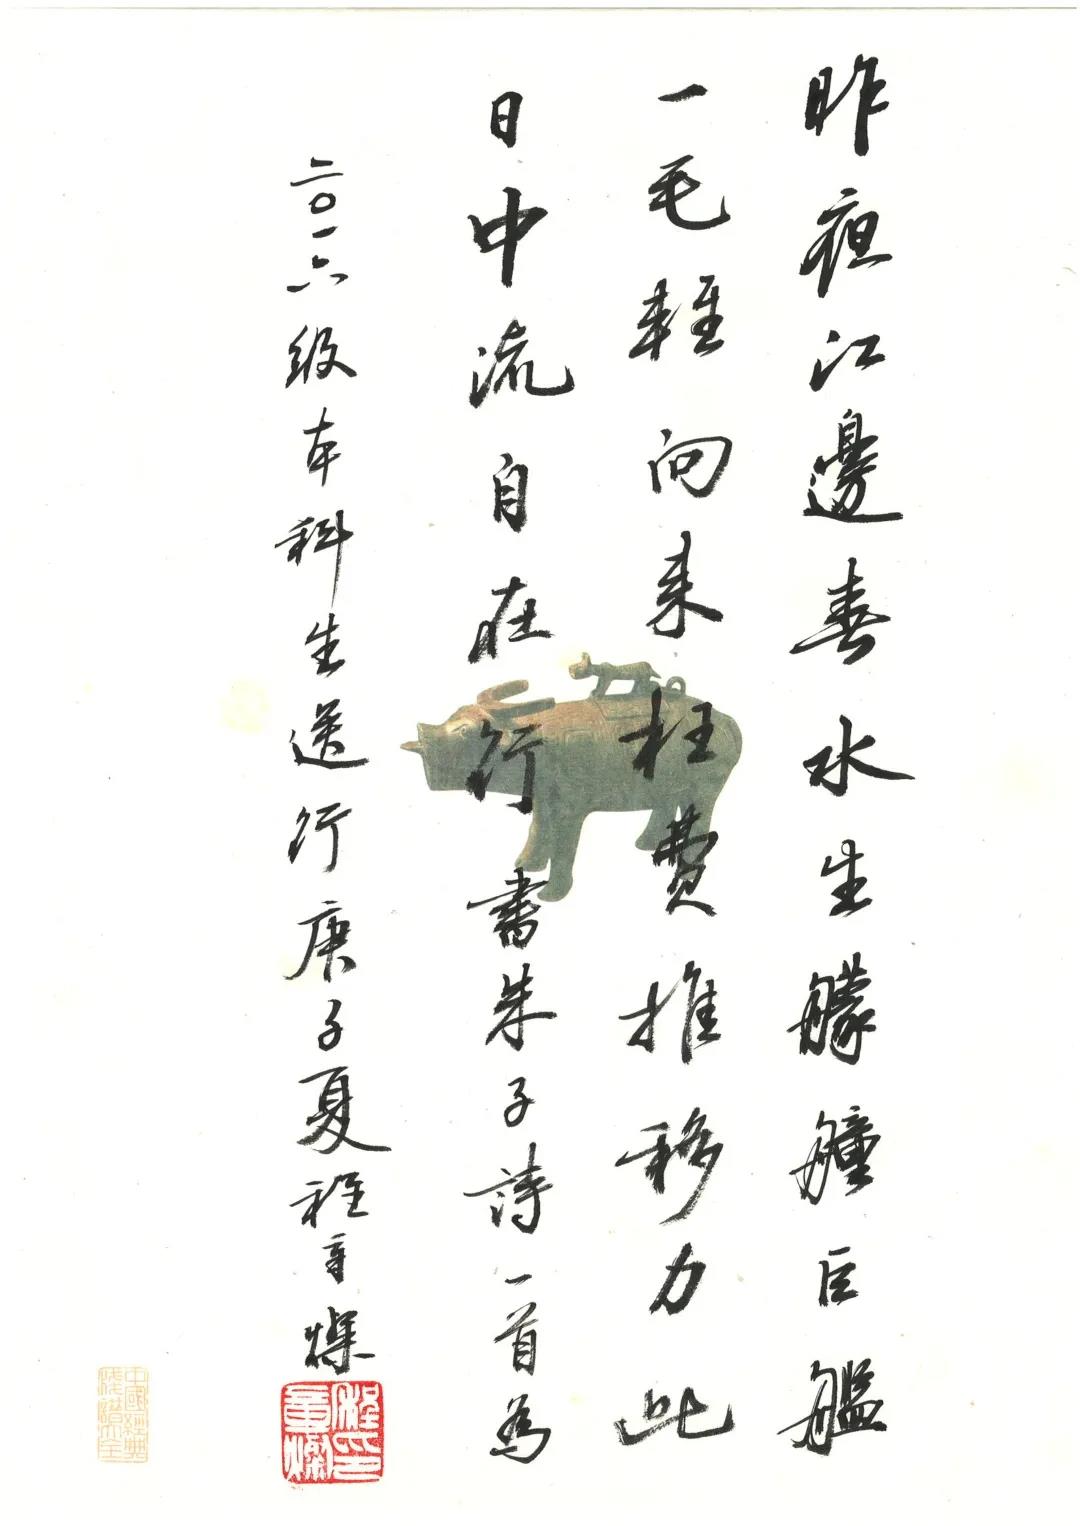 昨夜江邊春水生艨艟巨艦
一毛輕向來枉費推移力此
日中流自在行書朱子詩一首為
二〇一六級本科生送行庚子夏程章燦
程章燦印